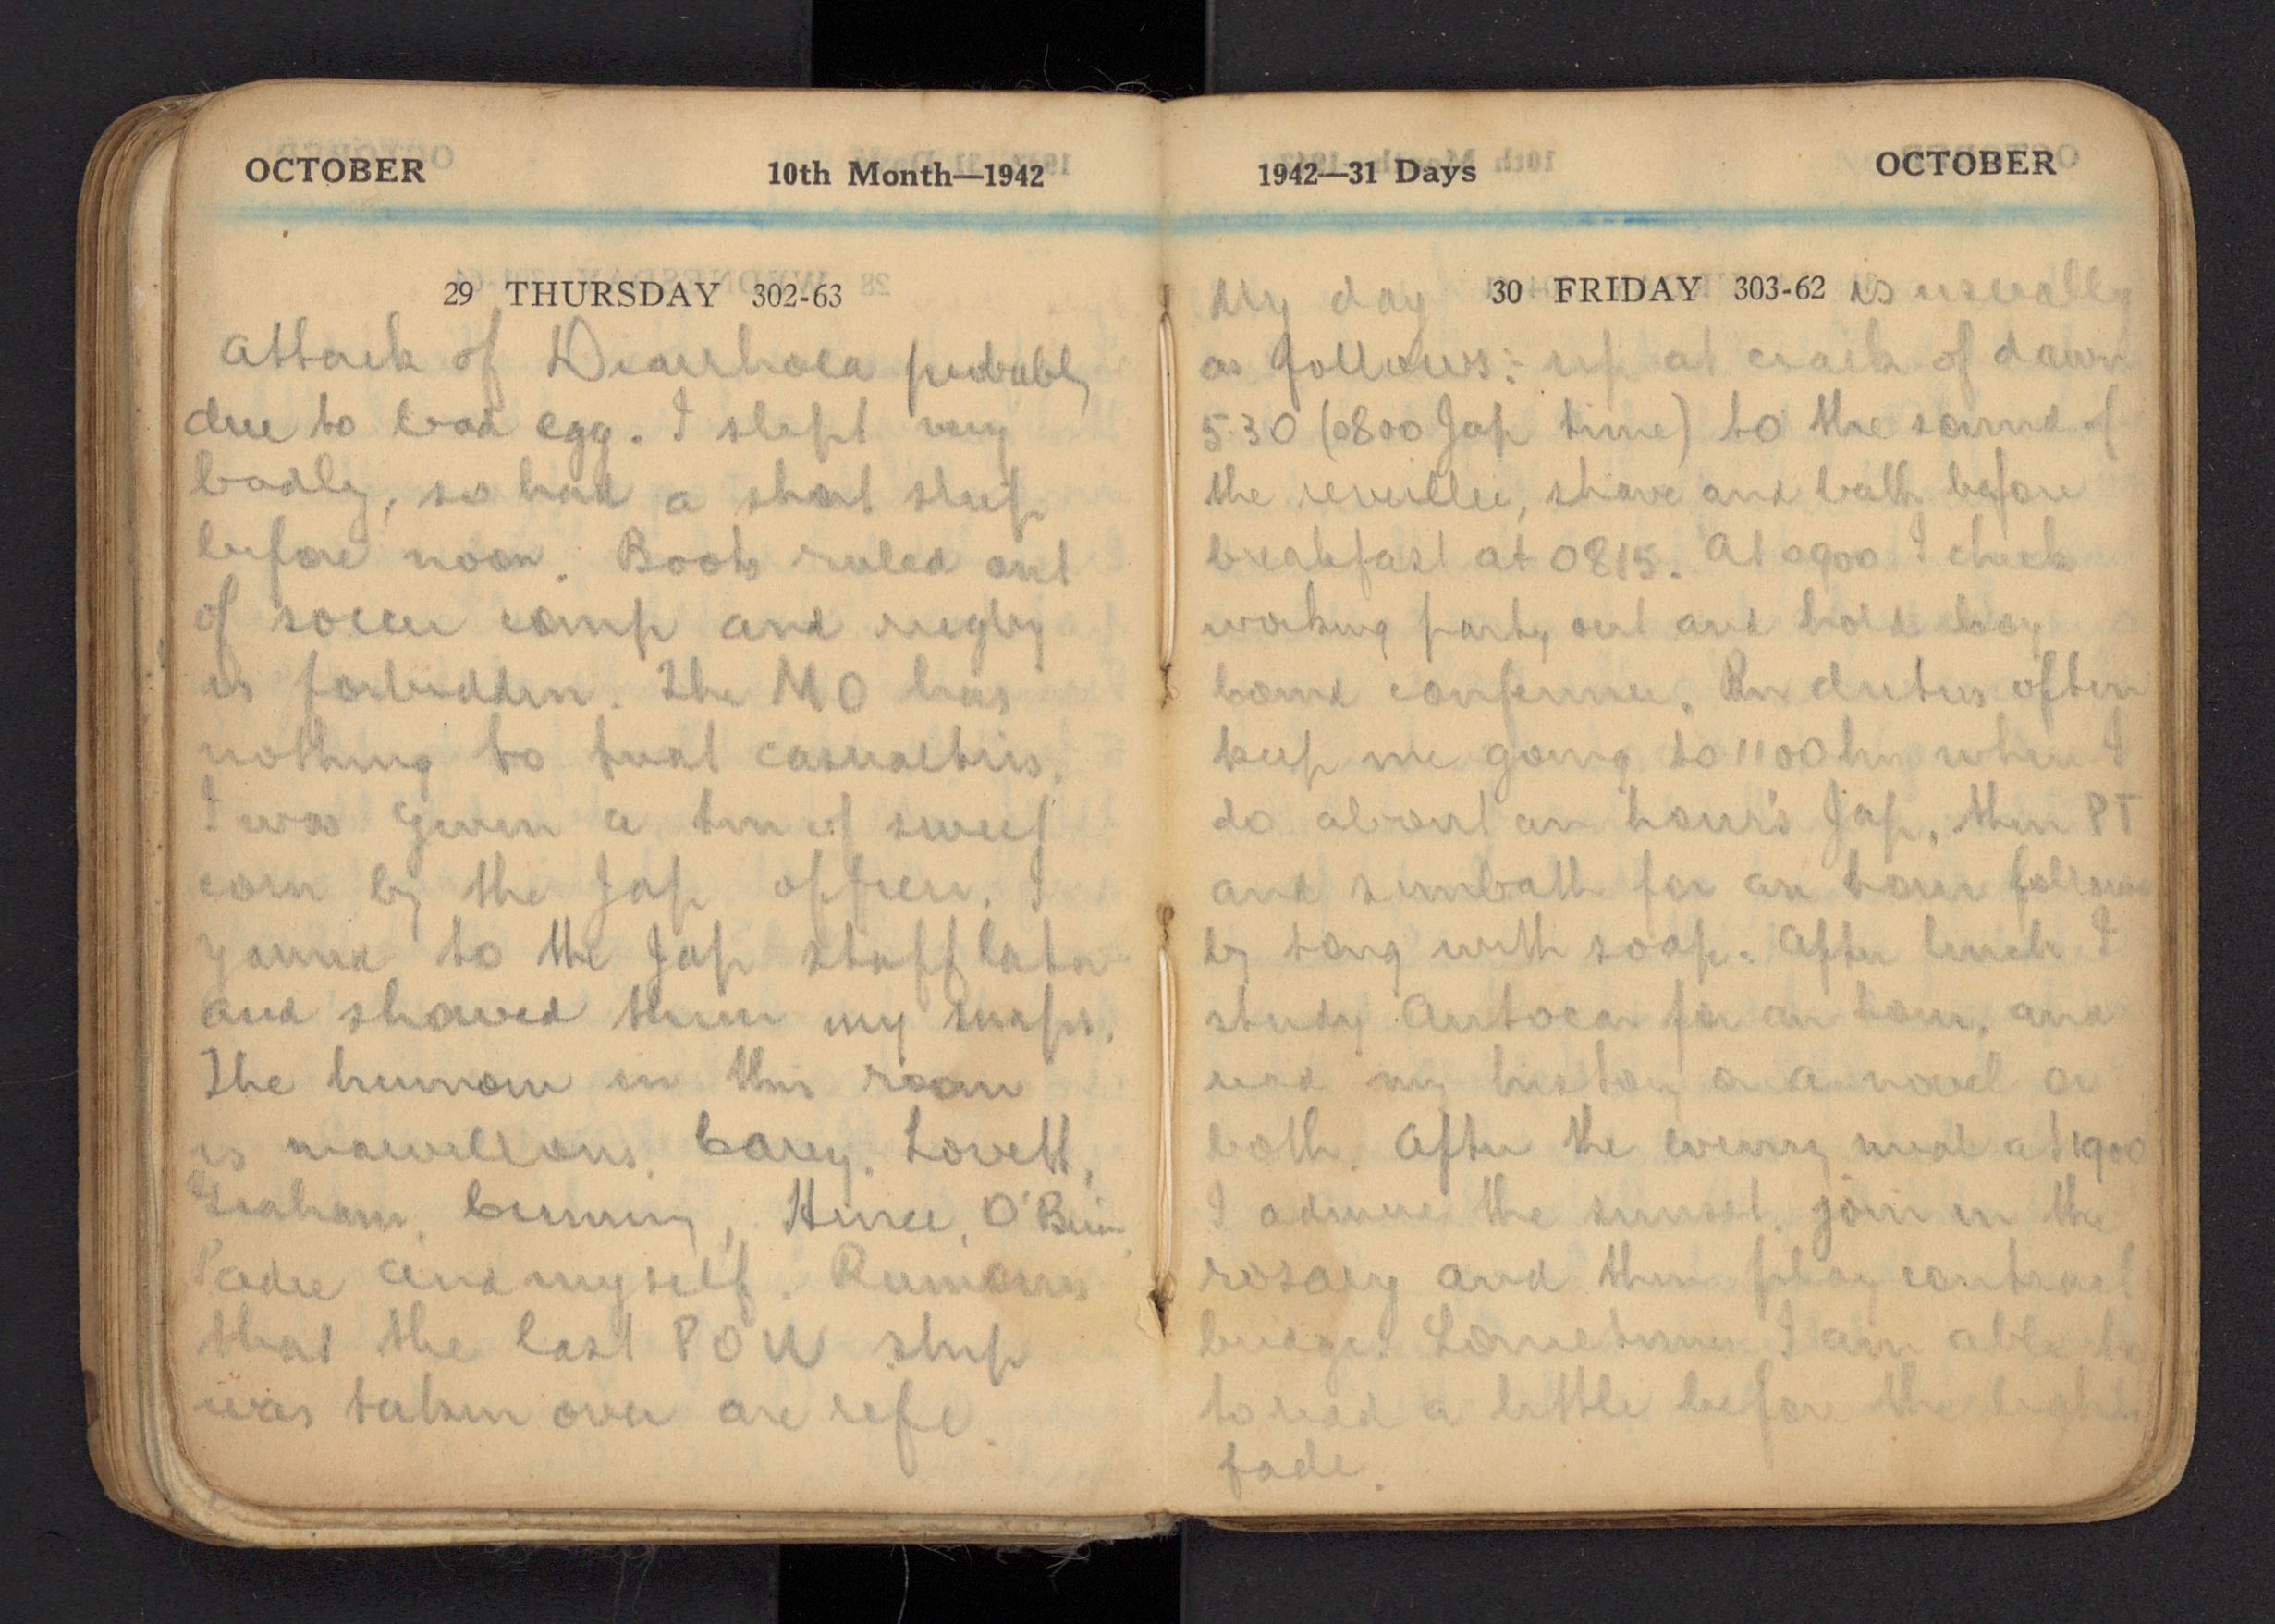 OCTOBER 10th Month—1942
29 THURSDAY 302-63
Attack of Diarrhoea probably
due to bad egg. I slept very
badly, so had a short sleep
before noon. Boots ruled out
of soccer comp and rugby
is forbidden. The MO has
nothing to treat casualties.
I was given a tin of sweet
corn by the Jap officer. I
yarned to the Jap staff later
and showed them my snaps.
The humour in this room
is marvellous. Carey, Lovett,
Graham, Cumming, Hince, O'Brien,
Padre and myself. Rumours
that the last POW ship
was taken over are rife.
1942—31 Days OCTOBER
My day 30 FRIDAY 303-62 is usually
as follows:- up at crack of dawn
5.30 (0800 Jap time) to the sound of
the reveillee, shave and bath before
breakfast at 0815. At 0900 I check
working party out and hold
conference. duties often
keep me going to 1100 hrs when I
do about an hour's Jap, then PT
and sunbath for an hour followed
by with soap. After lunch I
study Autocar for an hour, and
read my history or a novel or
both. After the evening meal at 1900
I admire the sunset, join in the
rosary and then play contract
bridge. Sometimes I am able to
to read a little before the lights
fade.